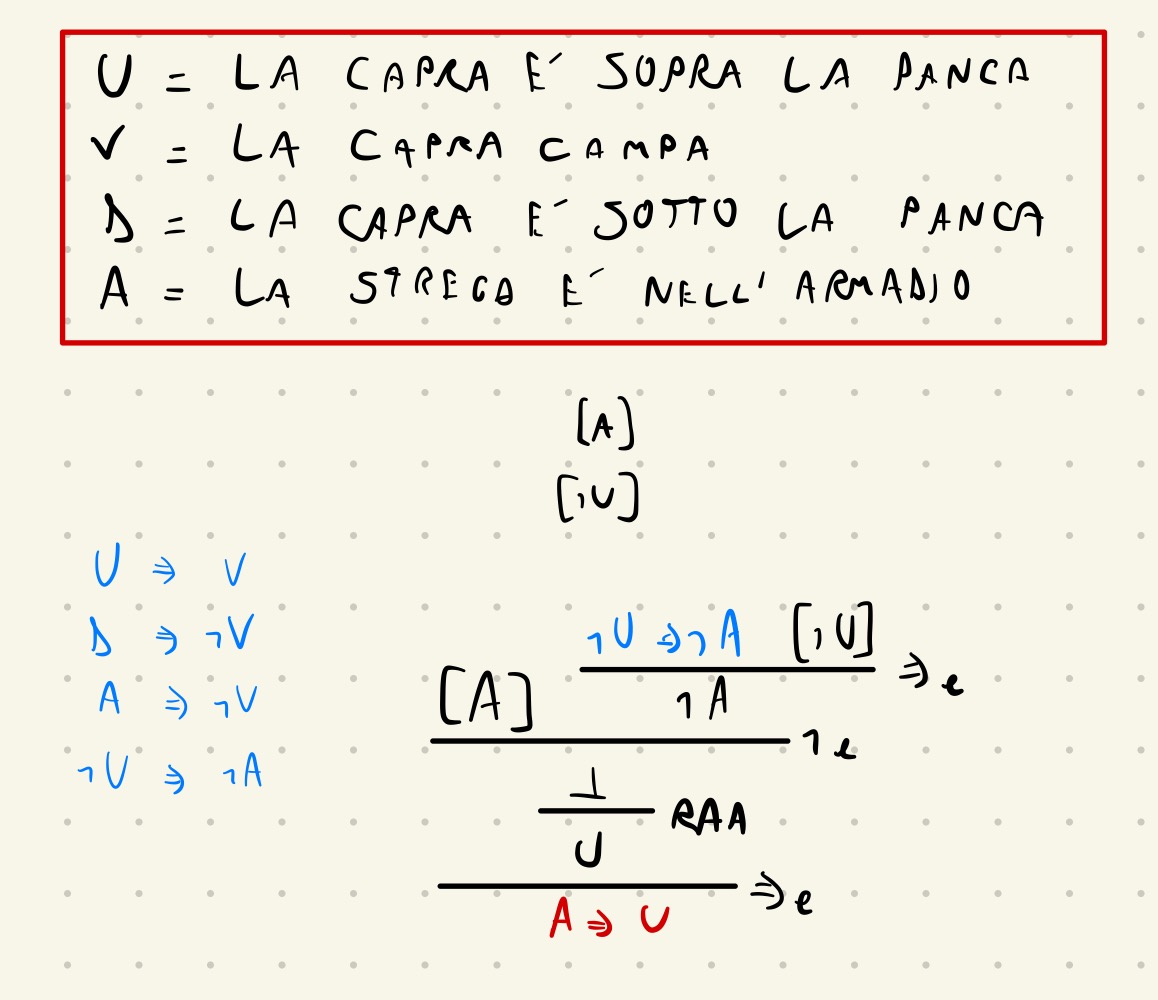 U = LA CAPRA E´ SOPRA LA PANCA
V = LA CAPRA CAMPA
D = LA CAPRA E´ SOTTO LA PANCA
A = LA STREGA E´ NELL' ARMADIO
[A]
[¬U]
U ⇒ V
D ⇒ ¬V
A ⇒ ¬V
¬U ⇒ ¬A
¬U ⇒ ¬A [¬U] ⇒e
[A] ¬A ¬e
⊥ RAA
U ⇒e
A ⇒ U